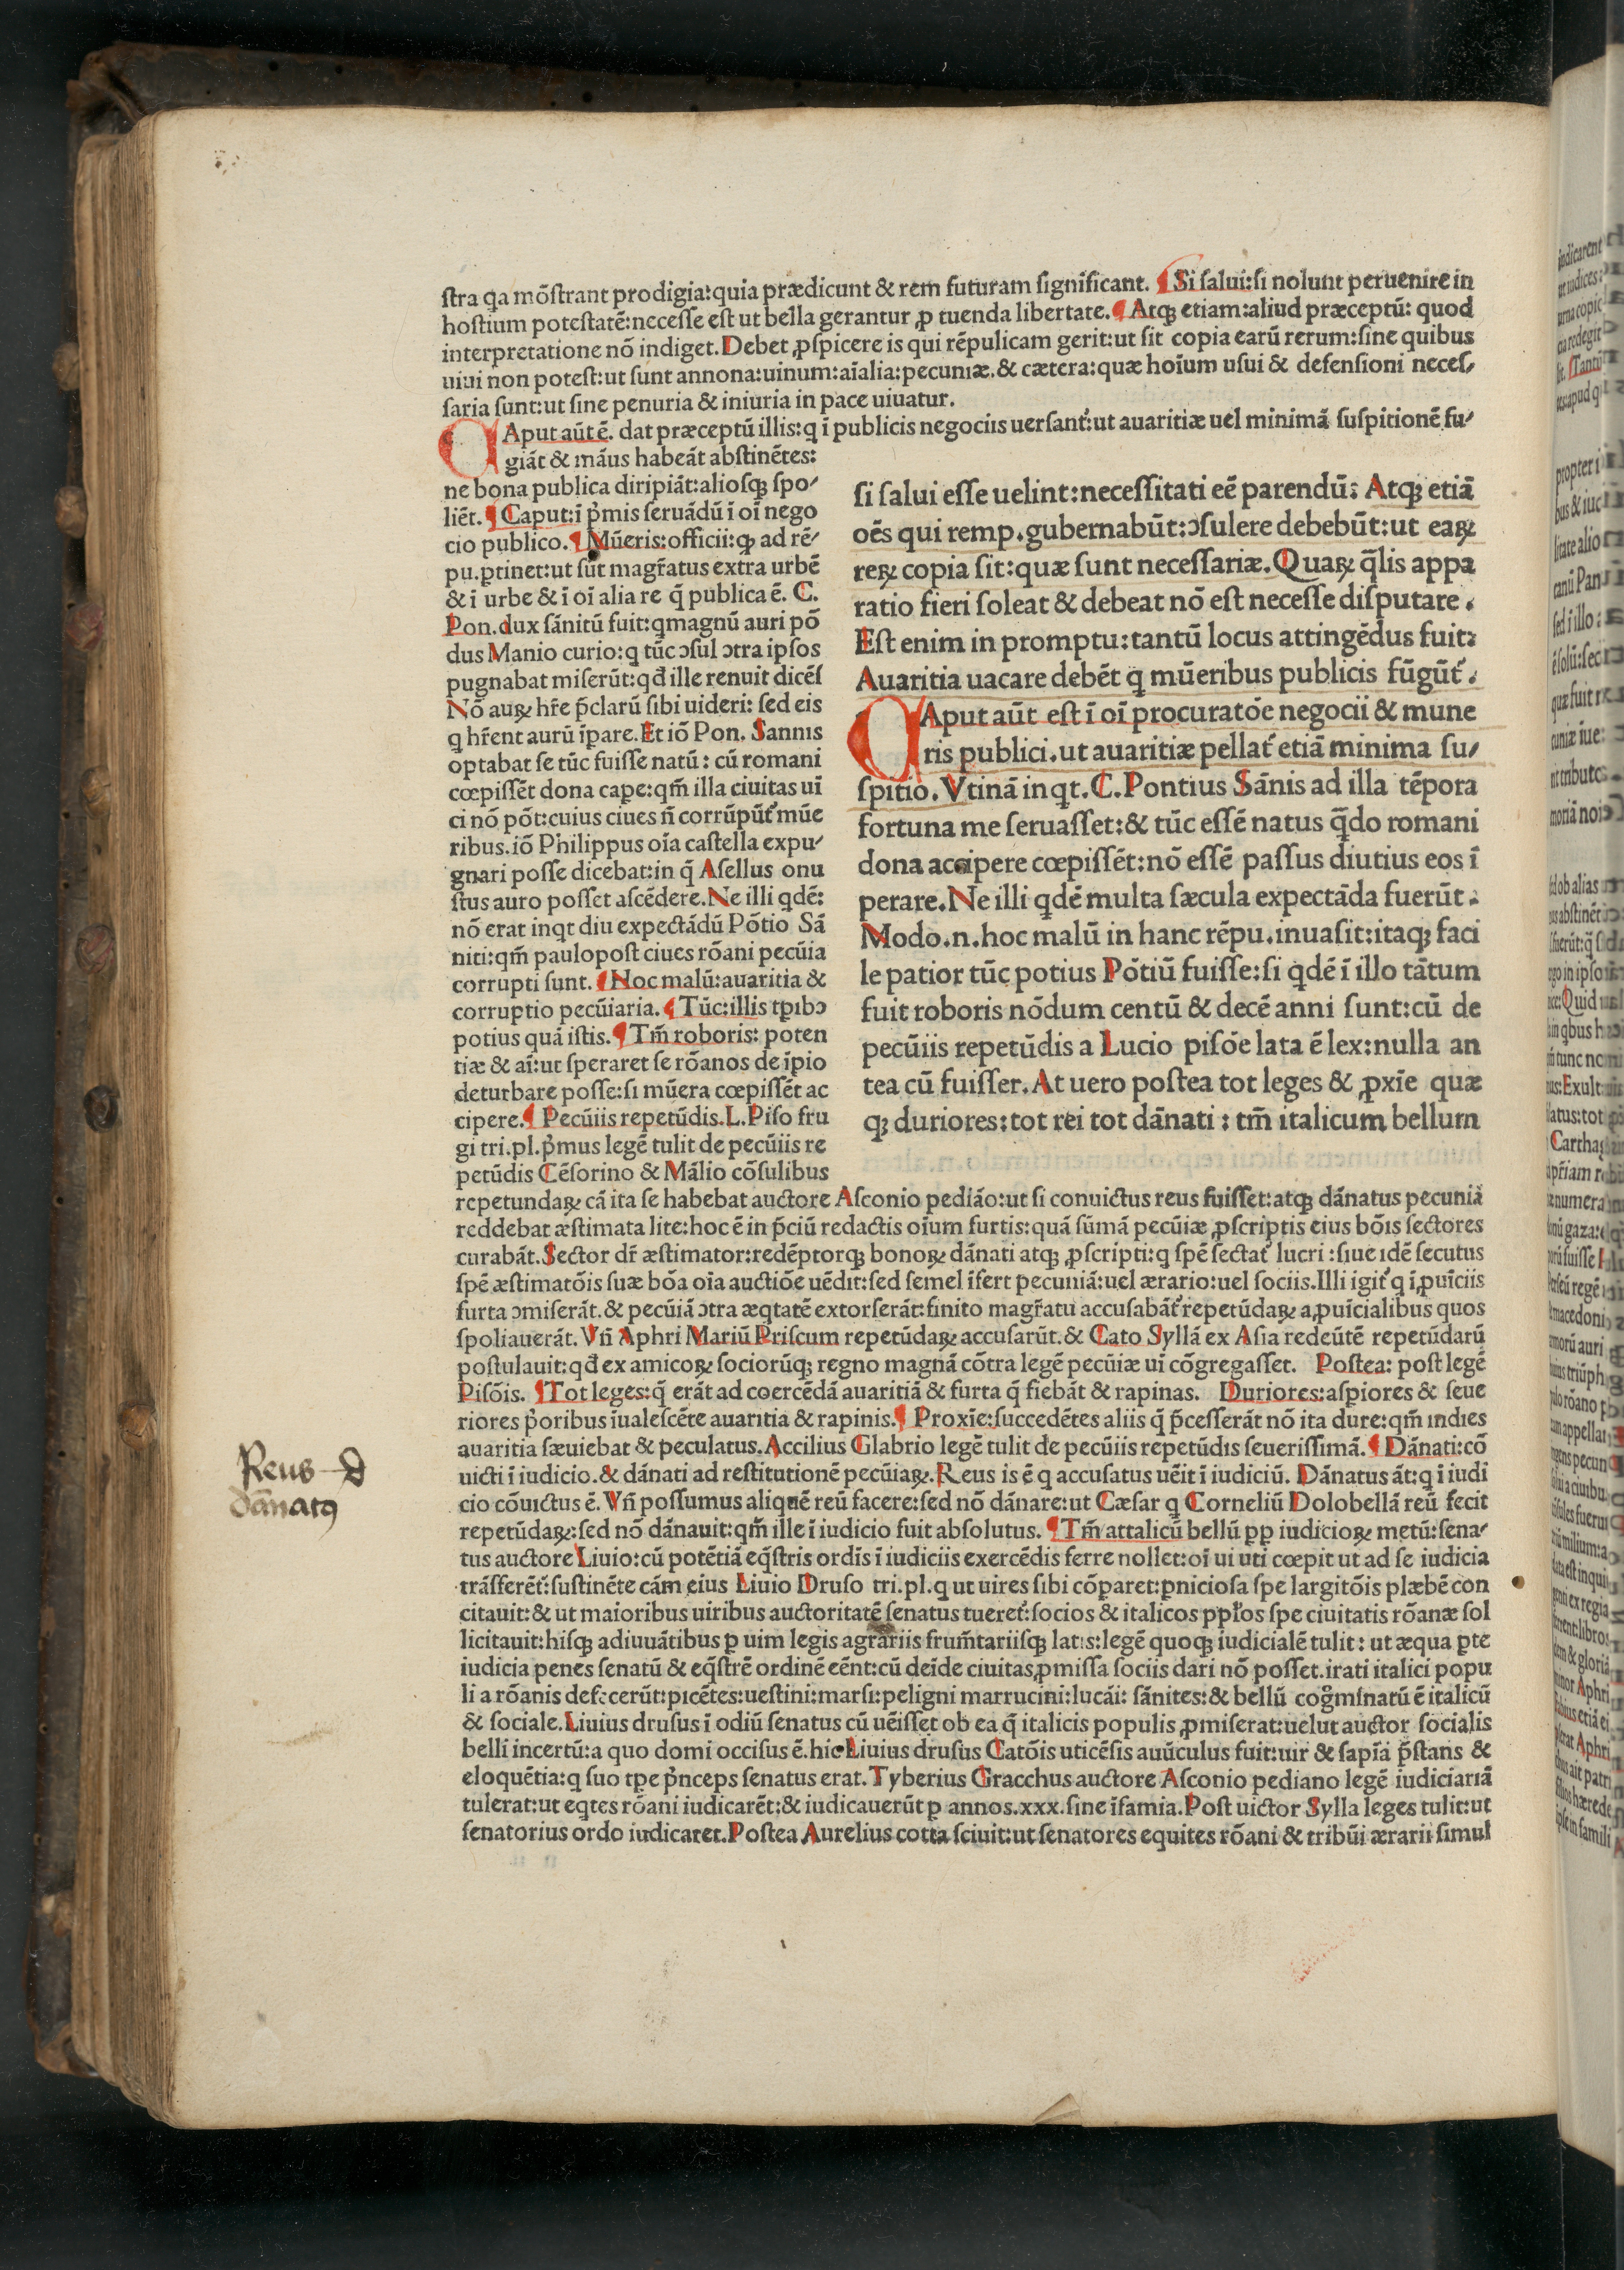 ſtra q̄a mõſtrant prodigia:quia prædicunt & rem futuram ſignificant. ¶ Si ſalui:ſi nolunt peruenire in
hoſtium poteſtatē:neceſſe eſt ut bella gerantur ꝓ tuenda libertate.¶ Atqꝫ etiam:aliud præceptū: quod
interpretatione nõ indiget.Debet ꝓſpicere is qui rēpulicam gerit:ut ſit copia earū rerum:ſine quibus
uiui non poteſt:ut ſunt annona:uinum:aīalia:pecuniæ.& cætera:quæ hoīum uſui & defenſioni neceſ/
ſaria ſunt:ut ſine penuria & iniuria in pace uiuatur.
CAput aūt ē. dat præceptū illis:q ī publicis negociis uerſant᷑:ut auaritiæ uel minimā ſuſpitionē fu/
giāt & māus habeāt abſtinētes:
ne bona publica diripiāt:alioſqꝫ ſpo/
liēt.¶ Caput:ī p̄mis ſeruādū ī oī nego
cio publico.¶ Mūeris:officii:ꝙ ad rē/
pu.ꝑtinet:ut ſūt magr̄atus extra urbē
& ī urbe & ī oī alia re q̄ publica ē. C.
Pon.dux ſānitū fuit:qmagnū auri põ
dus Manio curio:q tūc ↄſul ↄtra ipſos
pugnabat miſerūt:qđ ille renuit dicēſ
Nõ auꝝ hr̄e p̄clarū ſibi uideri: ſed eis
q hr̄ent aurū īpare.Et iõ Pon. Sannis
optabat ſe tūc fuiſſe natū: cū romani
cœpiſſēt dona caꝑe:qm̄ illa ciuitas uī
ci nõ põt:cuius ciues n̄ corrūpūt᷑ mūe
ribus.iõ Philippus oīa caſtella expu/
gnari poſſe dicebat:in q̄ Aſellus onu
ſtus auro poſſet aſcēdere.Ne illi qdē:
nõ erat inqt diu expectādū Põtio Sā
niti:qm̄ paulopoſt ciues rõani pecūia
corrupti ſunt.¶ Hoc malū:auaritia &
corruptio pecūiaria.¶ Tūc:illis tꝑibↄ
potius quā iſtis.¶ Tm̄ roboris: poten
tiæ & aī:ut ſperaret ſe rõanos de īpio
deturbare poſſe:ſi mūera cœpiſſēt ac
cipere.¶ Pecūiis repetūdis.L.Piſo fru
gi tri.pl.p̄mus legē tulit de pecūiis re
petūdis Cēſorino & Mālio cõſulibus
ſi ſalui eſſe uelint:neceſſitati eē parendū: Atqꝫ etiā
oēs qui remp.gubernabūt:ↄſulere debebūt:ut eaꝝ
reꝝ copia ſit:quæ ſunt neceſſariæ.Quaꝝ q̄lis appa
ratio fieri ſoleat & debeat nõ eſt neceſſe diſputare.
Eſt enim in promptu:tantū locus attingēdus fuit:
Auaritia uacare debēt q mūeribus publicis fūgūt᷑.
CAput aūt eſt ī oī procuratõe negocii & mune
ris publici.ut auaritiæ pellat᷑ etiā minima ſu/
ſpitio. Vtinā inqt.C.Pontius Sānis ad illa tēpora
fortuna me ſeruaſſet:& tūc eſſē natus q̄do romani
dona accipere cœpiſſēt:nõ eſſē paſſus diutius eos ī
perare.Ne illi qdē multa ſæcula expectāda fuerūt:
Modo.n.hoc malū in hanc rēpu.inuaſit:itaqꝫ faci
le patior tūc potius Põtiū fuiſſe:ſi qdē ī illo tātum
fuit roboris nõdum centū & decē anni ſunt:cū de
pecūiis repetūdis a Lucio piſõe lata ē lex:nulla an
tea cū fuiſſer.At uero poſtea tot leges & ꝓxīe quæ
qꝫ duriores:tot rei tot dānati : tm̄ italicum bellum
repetundaꝝ cā ita ſe habebat auctore Aſconio pediāo:ut ſi conuictus reus fuiſſet:atqꝫ dānatus pecuniā
reddebat æſtimata lite:hoc ē in p̄ciū redactis oīum furtis:quā ſūmā pecūiæ ꝓſcriptis eius bõis ſectores
curabāt.Sector dr̄ æſtimator:redēptorqꝫ bonoꝝ dānati atqꝫ ꝓſcripti:q ſpē ſectat᷑ lucri :ſiue idē ſecutus
ſpē æſtimatõis ſuæ bõa oīa auctiõe uēdit:ſed ſemel īfert pecuniā:uel ærario:uel ſociis.Illi igit᷑ q ī ꝓuīciis
furta ↄmiſerāt.& pecūiā ↄtra æqtatē extorſerāt:finito magr̄atu accuſabāt᷑ repetūdaꝝ a ꝓuīcialibus quos
ſpoliauerāt.Vn̄ Aphri Mariū Priſcum repetūdaꝝ accuſarūt.& Cato Syllā ex Aſia redeūtē repetūdarū
poſtulauit:qđ ex amicoꝝ ſociorūqꝫ regno magnā cõtra legē pecūiæ uī cõgregaſſet. Poſtea: poſt legē
Piſõis. ¶Tot leges:q̄ erāt ad coercēdā auaritiā & furta q̄ fiebāt & rapinas. Duriores:aſpiores & ſeue
riores p̄oribus īualeſcēte auaritia & rapinis.¶ Proxīe:ſuccedētes aliis q̄ p̄ceſſerāt nõ ita dure:qm̄ indies
auaritia ſæuiebat & peculatus.Accilius Glabrio legē tulit de pecūiis repetūdis ſeueriſſimā.¶ Dānati:cõ
uicti ī iudicio.& dānati ad reſtitutionē pecūiaꝝ.Reus is ē q accuſatus uēit ī iudiciū. Dānatus āt:q ī iudi
cio cõuictus ē. Vn̄ poſſumus aliquē reū facere:ſed nõ dānare:ut Cæſar q Corneliū Dolobellā reū fecit
repetūdaꝝ:ſed nõ dānauit:qm̄ ille ī iudicio fuit abſolutus. ¶Tm̄ attalicū bellū ꝓp iudicioꝝ metū:ſena/
tus auctore Liuio:cū potētiā eq̄ſtris ordīs ī iudiciis exercēdis ferre nollet:oī ui uti cœpit ut ad ſe iudicia
trāſferēt᷑:ſuſtinēte cām eius Liuio Druſo tri.pl.q ut uires ſibi cõparet:ꝑnicioſa ſpe largitõis plæbē con
citauit:& ut maioribus uiribus auctoritatē ſenatus tueret᷑:ſocios & italicos ppl̄os ſpe ciuitatis rõanæ ſol
licitauit:hiſqꝫ adiuuātibus ꝑ uim legis agrariis frum̄tariiſqꝫ latis:legē quoqꝫ iudicialē tulit: ut æqua ꝑte
iudicia penes ſenatū & eq̄ſtrē ordinē eēnt:cū deīde ciuitas ꝓmiſſa ſociis dari nõ poſſet.irati italici popu
li a rõanis defecerūt:picētes:ueſtini:marſi:peligni marrucini:lucāi: ſānites:& bellū cog̃mīnatū ē italicū
& ſociale.Liuius druſus ī odiū ſenatus cū uēiſſet ob ea q̄ italicis populis ꝓmiſerat:uelut auctor ſocialis
belli incertū:a quo domi occiſus ē.hic Liuius druſus Catõis uticēſis auūculus fuit:uir & ſapīa p̄ſtans &
eloquētia:q ſuo tꝑe p̄nceps ſenatus erat.Tyberius Gracchus auctore Aſconio pediano legē iudiciariā
tulerat:ut eqtes rõani iudicarēt:& iudicauerūt ꝑ annos.xxx.ſine īfamia.Poſt uictor Sylla leges tulit:ut
ſenatorius ordo iudicaret.Poſtea Aurelius cotta ſciuit:ut ſenatores equites rõani & tribūi ærarii ſimul
Reus
dānatꝰ